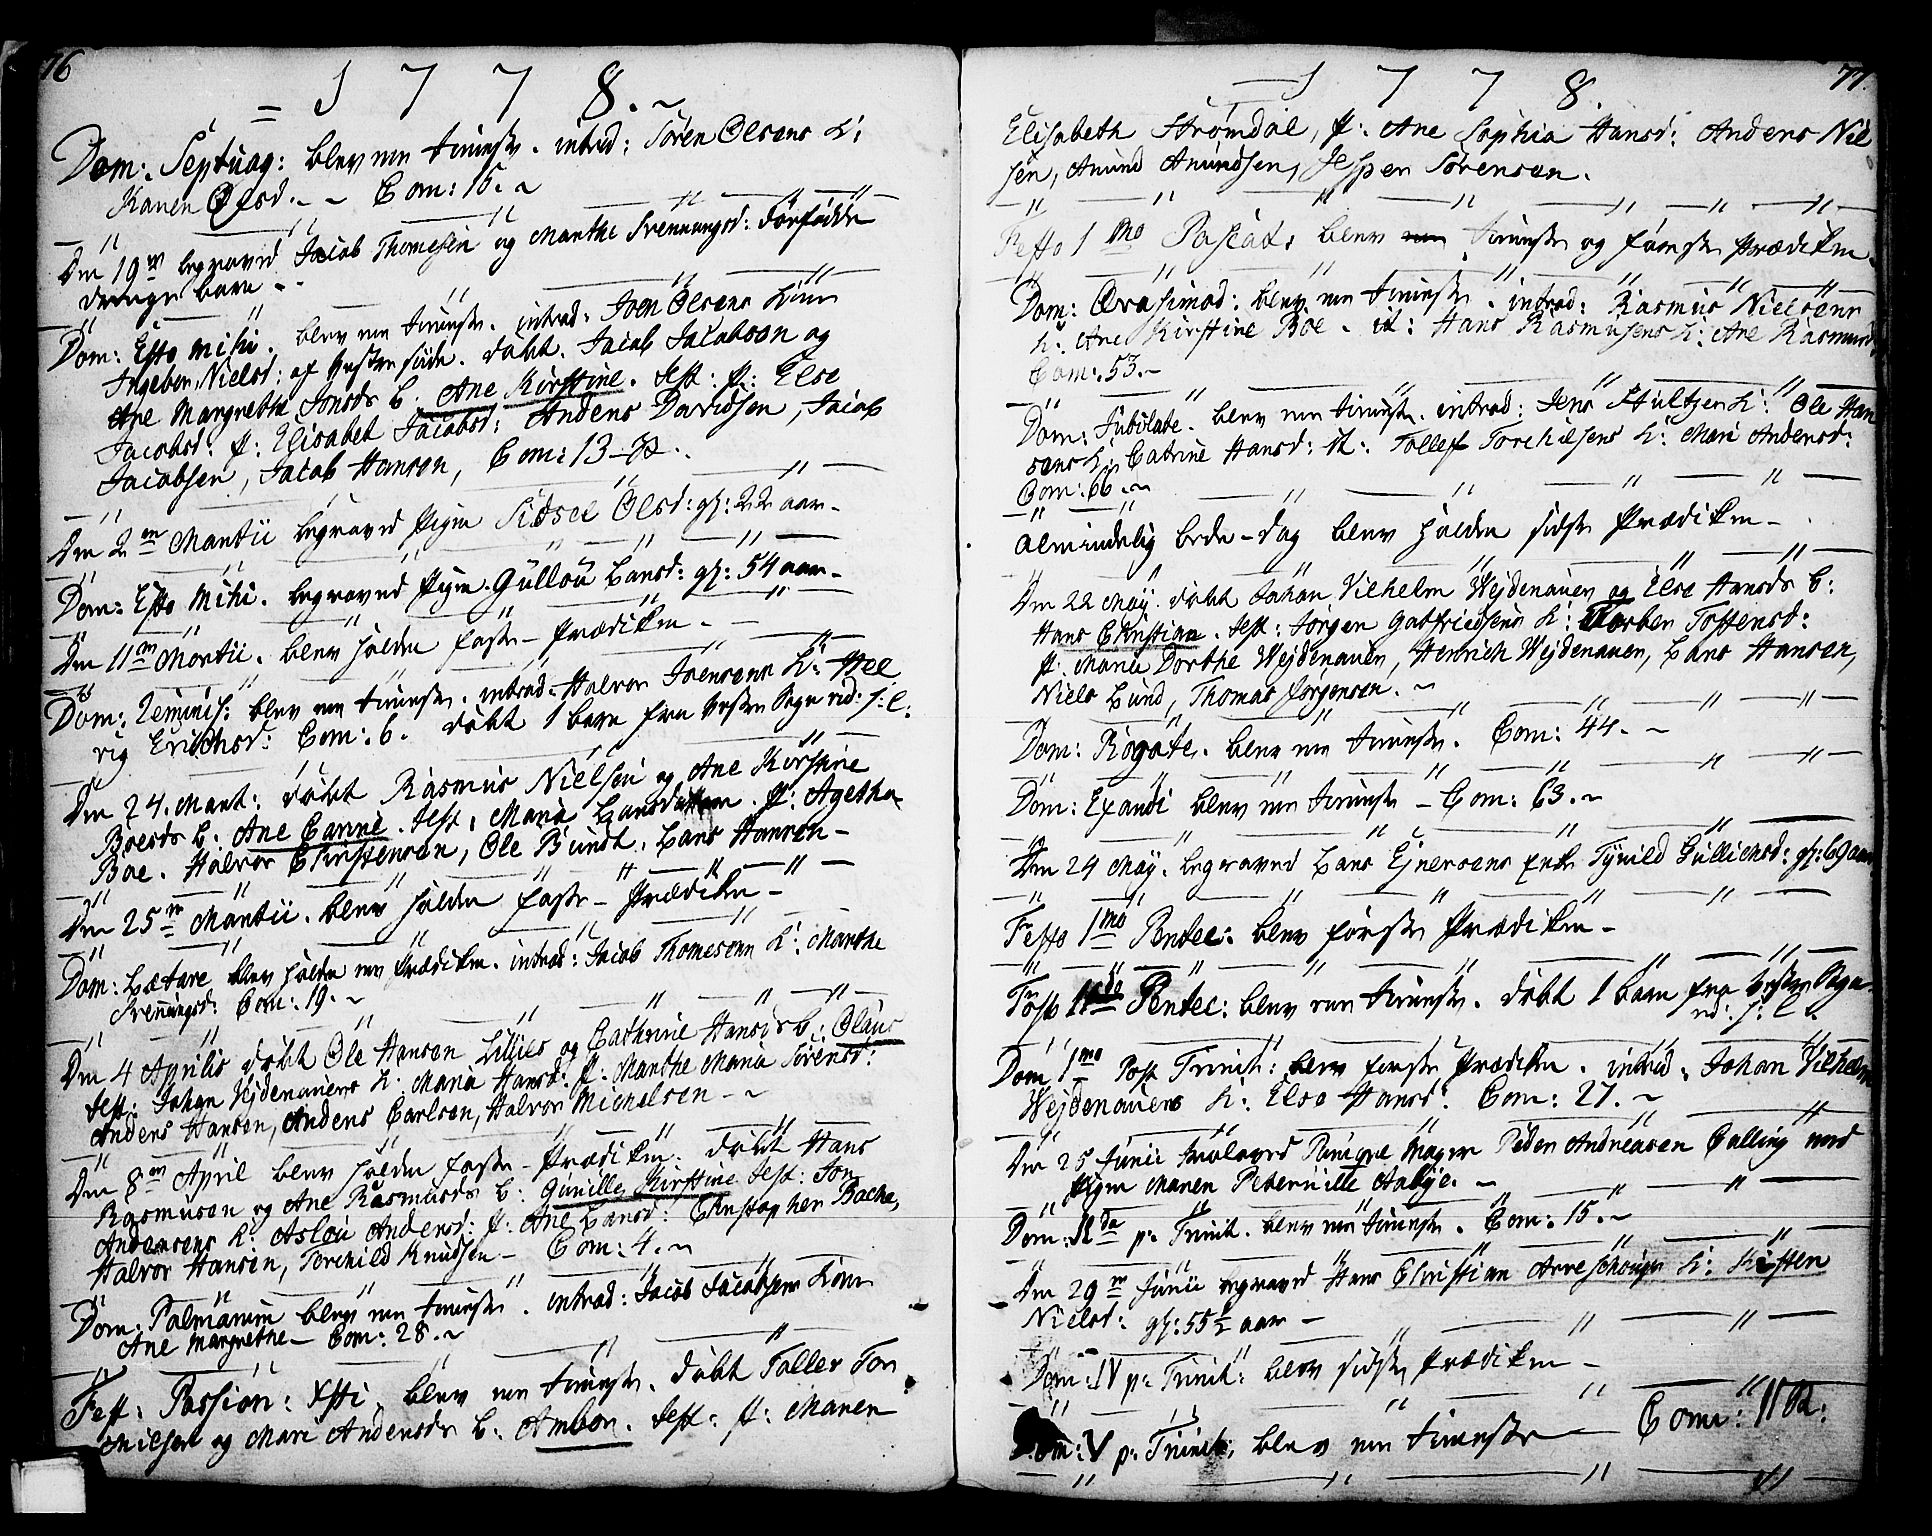 76
= 1 7 7 8. ~
Dom: Septuag: blev messe tieniste. introd: Sören Olsens K:
Karen Olsd. - ~ Com: 15. ~
Den 19de begraved Jacob Thomesen og Marthe Svennungsd:
drenge barn -
Dom: Esto mihi. blev tieniste. introd: Joen Olsens Kone
Ingebor Nielsd: af Vestre siide. döbt. Jacob Jacobson og
Ane Margrethe Jonsds B. Ane Kirstine. Test: P: Else
Jacobsd: P: Elisabet Jacobsd: Anders Davidsen, Jacob
Jacobsen, Jacob Hansen, Com: 13
Den 2en Martii begraved Pigen Sidsel Olsd: gl: 22 aar -
Dom: Esto Mihi. begraved Pigen Gullou Larsd: gl: 54 aar -
Den 11te Martii. blev holden faste - Prædiken. -
Dom: Reminis: blev tieniste. introd: Halvor Joensens K: Hel
vig Erichsd: Com: 6. döbt 1 barn fra Vestre Sogn vid: h: l:
Den 24. Mart: döbt Rasmus Nielsen og Ane Kirstine
Boesds B: Ane Carine. Test: Maria Larsdatter. P: Agetha
Boe. Halvor Christensen, Ole Bundt, Lars Hansen -
Den 25de Martii. blev holden faste - Prædiken -
Dom: Lætare blev holden Prædiken. introd: Jacob Thomesens K: Marthe
Svennungsd: Com: 19. ~
Den 4 Aprilis döbt Ole Hansen Lillies og Cathrine Hansds b: Olaus
Test: Johan Wejdenauers K. Maria Hansd: P: Marthe Maria Sörensd:
Anders Hansen, Anders Carlsen, Halvor Michelsen - ~
Den 8de April blev holden faste - Prædiken. döbt Hans
Rasmusen og Ane Rasmusds B: Gunille Kirstine Test: Jon
Andersens K. Aslou Andersd: P: Ane Larsd: Christopher Bache,
Halvor Hansen, Torchild Knudsen - Com: 4. ~
Dom: Palmarum blev tieniste. introd: Jacob Jacobsens Kone
Ane Margrethe - Com: 28. ~
Fest: Passion: Xsti blev tieniste. döbt Tollef Tor
chilsen og Mari Andersds B: Ambor. Test: P: Maren
77.
1 7 7 8.
Elisabeth Strömdal, P: Ane Sophia Hansd: Anders Niel
sen, Amund Amundsen, Jesper Sörensen.
Festo 1mo Paschat: blev tieniste og förste Prædiken.
Dom: Qvasimod: blev tieniste. introd: Rasmus Nielsens
K: Ane Kirstine Boe. it: Hans Rasmusens K: Ane Rasmusd.
Com: 53. -
Dom: Jubilate. blev tieniste. introd: Jens Stultzens K: Ole Han
sens K: Catrine Hansd: it: Tollef Torchilsens K: Mari Andersd:
Com: 66. ~
Almindelig bede - dag blev holden sidste Prædiken -
Den 22 Maÿ. döbt Johan Vilhelm Wejdenauer og Else Hansds b:
Hans Christian. Test: Jörgen Gotfriedsens K: Torber Tostensd:
P. Maria Dorthe Wejdenauer, Henrich Wejdenauer, Lars Hansen,
Niels Lund, Thomas Jörgensen. ~
Dom: Rogate. blev tieniste. Com: 44. ~
Dom: Exaudi blev tieniste - Com: 63. ~
Den 24 Maÿ. begraved Lars Ejnersens Enke Tÿrild Gullichsd: gl: 69 aar
Festo 1mo Pentec: blev förste Prædiken -
Festo IIde Pentec: blev tieniste. döbt 1 barn fra Vestre Sogn
vid: h: l.
Dom 1ma Post Trinit: blev förste Prædiken. introd: Johan Vilhelm
Wejdenauers K: Else Hansd: Com: 27. ~
Den 25 Junii Peder Andreasen Balling med
Pigen Maren Peternille Aabÿe. ~
Dom: IIda p: Trinit. blev tieniste. Com: 15. ~
Den 29de Junii begraved Hans Christian Arreschougs K: Kisten
Nielsd: gl: 55½ aar -
Dom: IV p: Trinit: blev sidste Prædiken -
Dom: V p: Trinit: blev tieniste - Com: